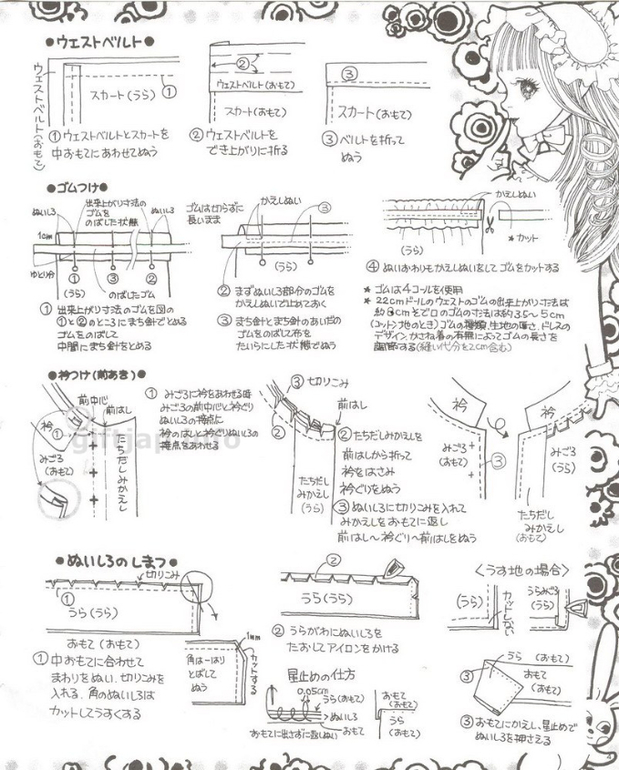 ●ウエストベルト●
ウエストベルト(おもて)
スカート(うら)
①
①ウエストベルトとスカートを
中おもてにあわせてぬう
②
ウエストベルト(おもて)
スカート(おもて)
②ウエストベルトを
でき上がりに折る
③
スカート(おもて)
③ベルトを折って
ぬう
●ゴムつけ●
ぬいしろ
出来上がり寸法の
ゴムを
のばした状態
ぬいしろ
1cm
ゆとり分
①
③
②
(うら)
のばしたゴム
①出来上がり寸法のゴムを図の
①と②のところにまち針でとめる
ゴムをのばして
中間にまち針をとめる
ゴムは切らずに
長いまま
かえしぬい
③
②
(うら)
②まずぬいしろ部分のゴムを
かえしぬいで止めておく
③まち針とまち針のあいだの
ゴムをのばして布を
たいらにした状態でぬう
かえしぬい
(うら)
*カット
④ぬいおわりもかえしぬいをしてゴムをカットする
*ゴムは4コールを使用
*22cmドールのウエストのゴムの出来上がり寸法は
(コットン地のとき)ゴムの種類、生地の厚さ、ドレスの
デザイン、かさね着の有無によってゴムの長さを
調節する(縫い代分を2cm含む)
●衿つけ(前あき)●
前中心
前はし
衿
①
みごろ
(おもて)
たちだしみかえし
①みごろに衿をあわせる時
みごろの前中心と衿ぐり
ぬいしろの接点に
衿のはしと衿ぐりぬいしろの
接点をあわせる
③切りこみ
前はし
②
たちだし
みかえし
(うら)
②たちだしみかえしを
前はしから折って
衿をはさみ
衿ぐりをぬう
③ぬいしろに切りこみを入れて
みかえしをおもてに返し
前はし〜衿ぐり〜前はしをぬう
衿
みごろ
(おもて)
③
衿
みごろ
(うら)
たちだし
みかえし
(おもて)
●ぬいしろのしまつ●
切りこみ
①
うら(うら)
おもて(おもて)
①中おもてに合わせて
まわりをぬい、切りこみを
入れる、角のぬいしろは
カットしてうすくする
1mm
角は一はり
とばして
ぬう
カットする
②
うら(うら)
②うらがわにぬいしろを
たおしてアイロンをかける
星止めの仕方
0.05cm
うら(おもて)
ぬいしろ
おもてに出さずに返しぬい
おもて
(おもて)
うら
(おもて)
<うす地の場合>
(うら)
カットしない
うらみごろ
(うら)
うら(おもて)
③
おもて
(おもて)
③おもてにかえし、星止めで
ぬいしろを押さえる